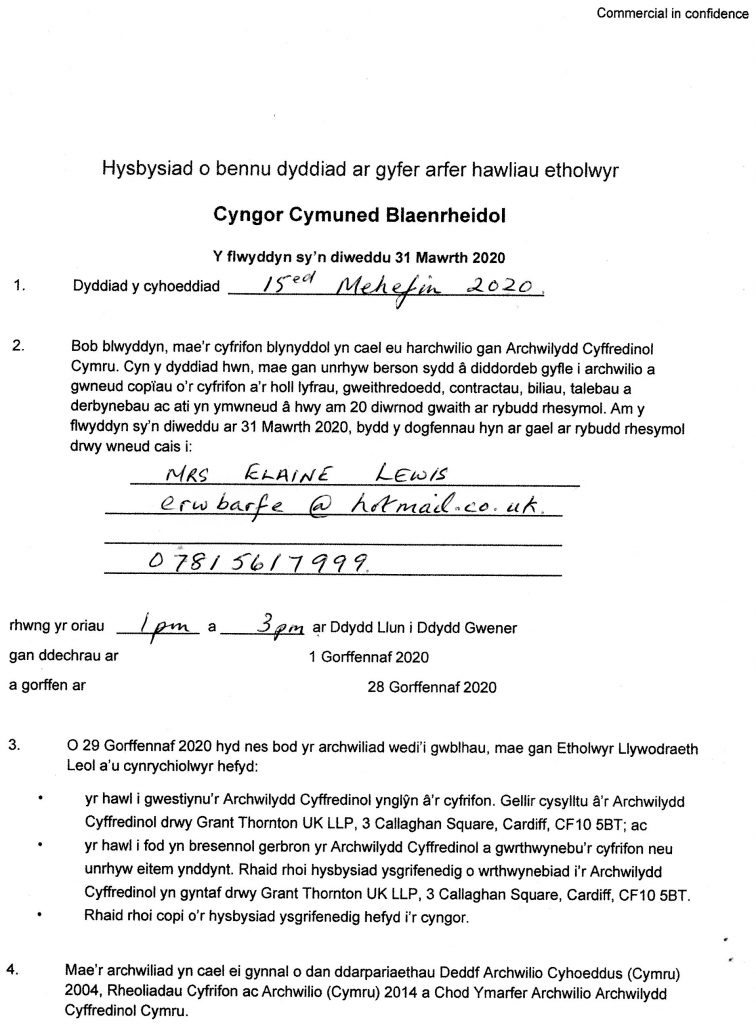 Commercial in confidence
Hysbysiad o bennu dyddiad ar gyfer arfer hawliau etholwyr
Cyngor Cymuned Blaenrheidol
Y flwyddyn sy'n diweddu 31 Mawrth 2020
1. Dyddiad y cyhoeddiad 15ed Mehefin 2020.
2. Bob blwyddyn, mae'r cyfrifon blynyddol yn cael eu harchwilio gan Archwilydd Cyffredinol
Cymru. Cyn y dyddiad hwn, mae gan unrhyw berson sydd â diddordeb gyfle i archwilio a
gwneud copïau o'r cyfrifon a'r holl lyfrau, gweithredoedd, contractau, biliau, talebau a
derbynebau ac ati yn ymwneud â hwy am 20 diwrnod gwaith ar rybudd rhesymol. Am y
flwyddyn sy'n diweddu ar 31 Mawrth 2020, bydd y dogfennau hyn ar gael ar rybudd rhesymol
drwy wneud cais i:
MRS ELAINE LEWIS
erwbarfe @ hotmail.co.uk.
07815617999.
rhwng yr oriau 1pm a 3pm ar Ddydd Llun i Ddydd Gwener
gan ddechrau ar 1 Gorffennaf 2020
a gorffen ar 28 Gorffennaf 2020
3. O 29 Gorffennaf 2020 hyd nes bod yr archwiliad wedi'i gwblhau, mae gan Etholwyr Llywodraeth
Leol a'u cynrychiolwyr hefyd:
• yr hawl i gwestiynu'r Archwilydd Cyffredinol ynglŷn â'r cyfrifon. Gellir cysylltu â'r Archwilydd
Cyffredinol drwy Grant Thornton UK LLP, 3 Callaghan Square, Cardiff, CF10 5BT; ac
• yr hawl i fod yn bresennol gerbron yr Archwilydd Cyffredinol a gwrthwynebu'r cyfrifon neu
unrhyw eitem ynddynt. Rhaid rhoi hysbysiad ysgrifenedig o wrthwynebiad i'r Archwilydd
Cyffredinol yn gyntaf drwy Grant Thornton UK LLP, 3 Callaghan Square, Cardiff, CF10 5BT.
• Rhaid rhoi copi o'r hysbysiad ysgrifenedig hefyd i'r cyngor.
4. Mae'r archwiliad yn cael ei gynnal o dan ddarpariaethau Deddf Archwilio Cyhoeddus (Cymru)
2004, Rheoliadau Cyfrifon ac Archwilio (Cymru) 2014 a Chod Ymarfer Archwilio Archwilydd
Cyffredinol Cymru.